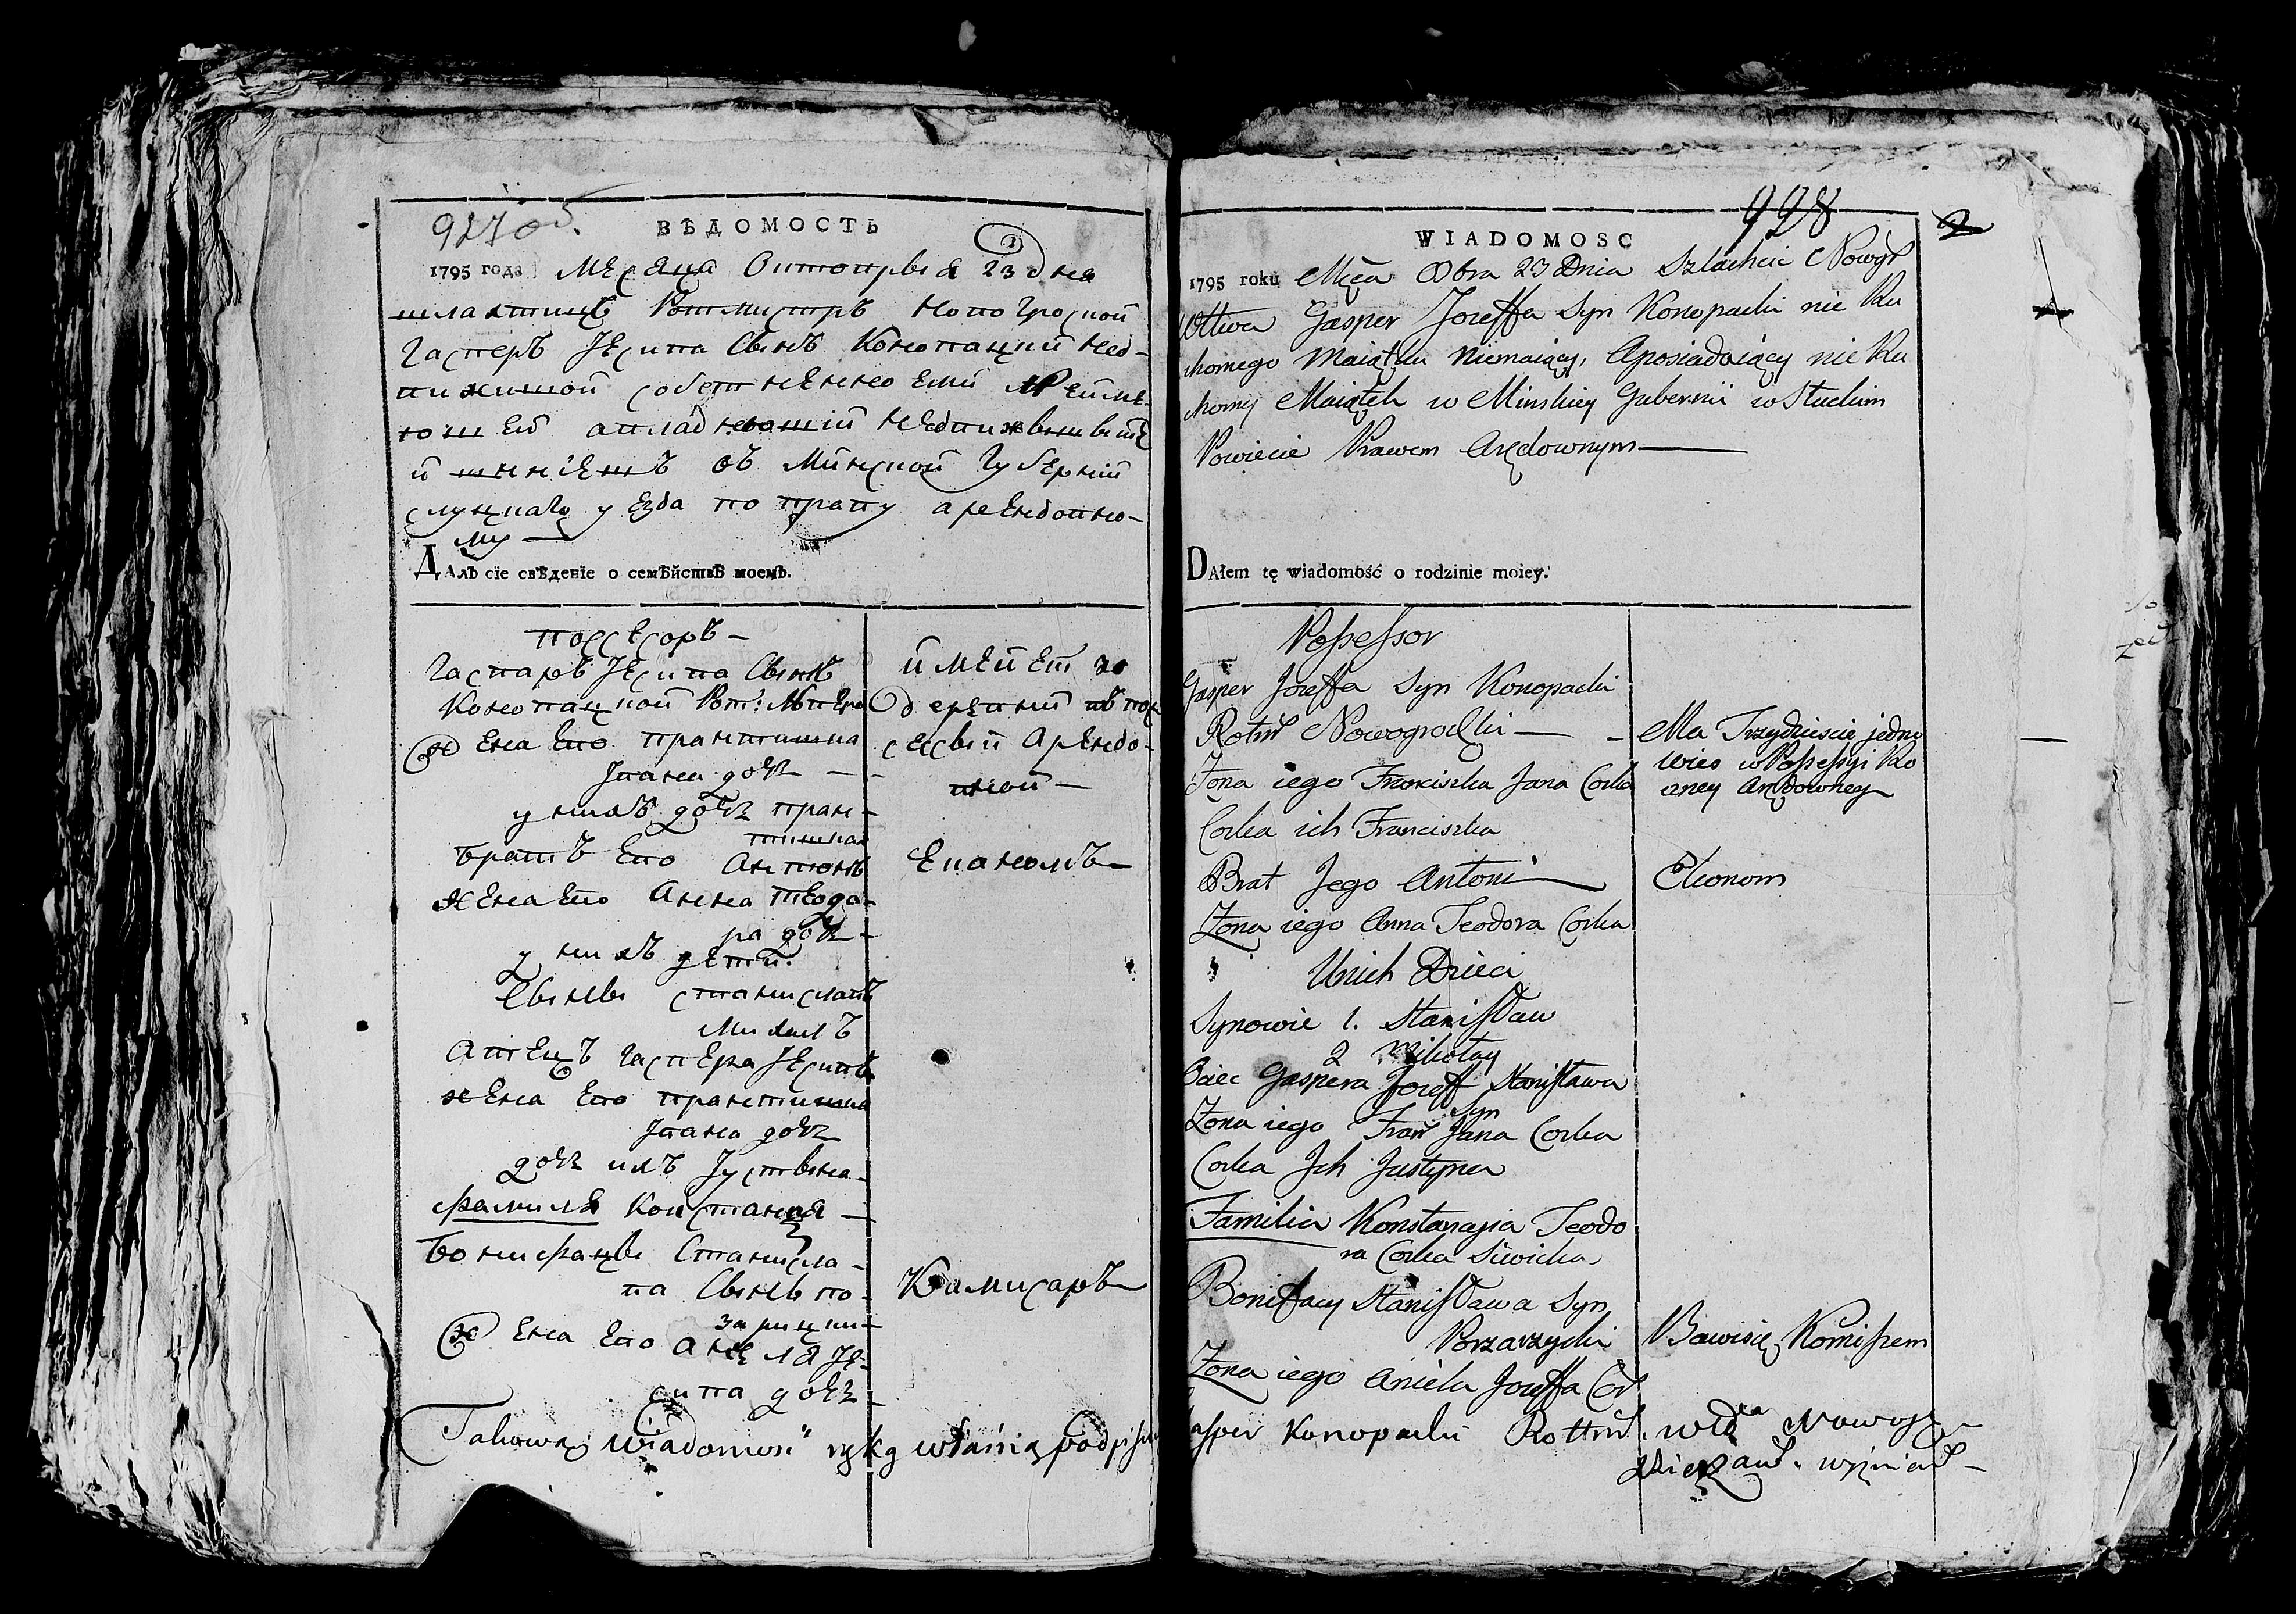 927 об.
ВѢДОМОСТЬ
1795 года Месяца Октоврыя 23 дня
шляхтичъ Ротмистръ Новогроцкой
Гасперъ Іесипа Сынъ Конопацкий нед-
вижимой собственно
въ Минской Губерний
слуцкаго уезда по праву арендовно-
му —
Далъ сіе свѣденіе о семѣйствѣ моемъ.
поссесоръ —
Гаспаръ Іесипа Сынъ
Конопацкой Рот:
Жена Ево Францишка
Івана дочь —
у нихъ дочь Фран-
цишка
братъ Ево Антонъ
жена Ево Анна Теодо-
ра дочь —
у нихъ дети:
Сыны Станиславъ
Михалъ
Атецъ Гаспера Іесипъ
жена Ево Францишка
Івана дочь
дочь ихъ Іустына
фамиля Констанця —
Бонифацы Станисла-
ва Сынъ по-
зарицки —
Жена Ево Анеля Іе-
сипа дочь —
имеиет 30
Арендо-
вной —
Еканомъ —
Камисаръ
Takową wiadomość ręką własną podpisuię
928
2
WIADOMOSC
1795 roku Mca 8bra 23 Dnia Szlachcic Nowgr
Wttwa Gasper Jozeffa Syn Konopacki nie Ru
chomego Maiątku Niemaiący, Aposiadaiący nie Ru
chomy Maiątek w Minskiey Gubernii w Słuckim
Powiecie Prawem Arędownym —
DAłem tę wiadomość o rodzinie moiey.
Possessor
Gasper Jozeffa Syn Konopacki
Rotm Nowogrodzki — —
Zona iego Franciszka Jana Corka
Corka ich Franciszka
Brat Jego Antoni —
Zona iego Anna Teodora Corka
Unich Dzieci
Synowie 1. Stanisław
2 Mikołay
Ociec Gaspera Jozeff Stanisława
Syn
Zona iego Fran Jana Corka
Corka Ich Justyna
Familia Konstancyia Teodo
ra Corka Siwicka
Bonifacy Stanisława Syn
Porzarzycki
Zona iego Aniela Jozeffa Cor
Ma Trzydziescie jedne
wies w Possessyi
Arędowney
Ekonom
Bawisię Komissrem
Gasper Konopacki Rottm. wdª Nowog —